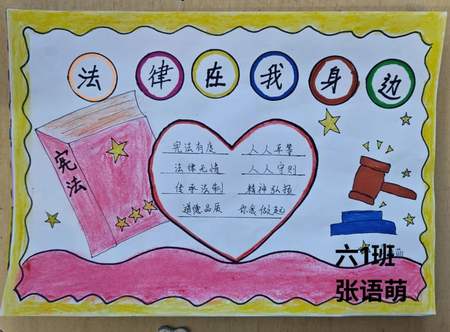 法律在我身边
宪法
宪法有度 人人平等
法律无情 人人守则
传承法制 精神弘扬
道德品质 你我做起
六1班
张语萌